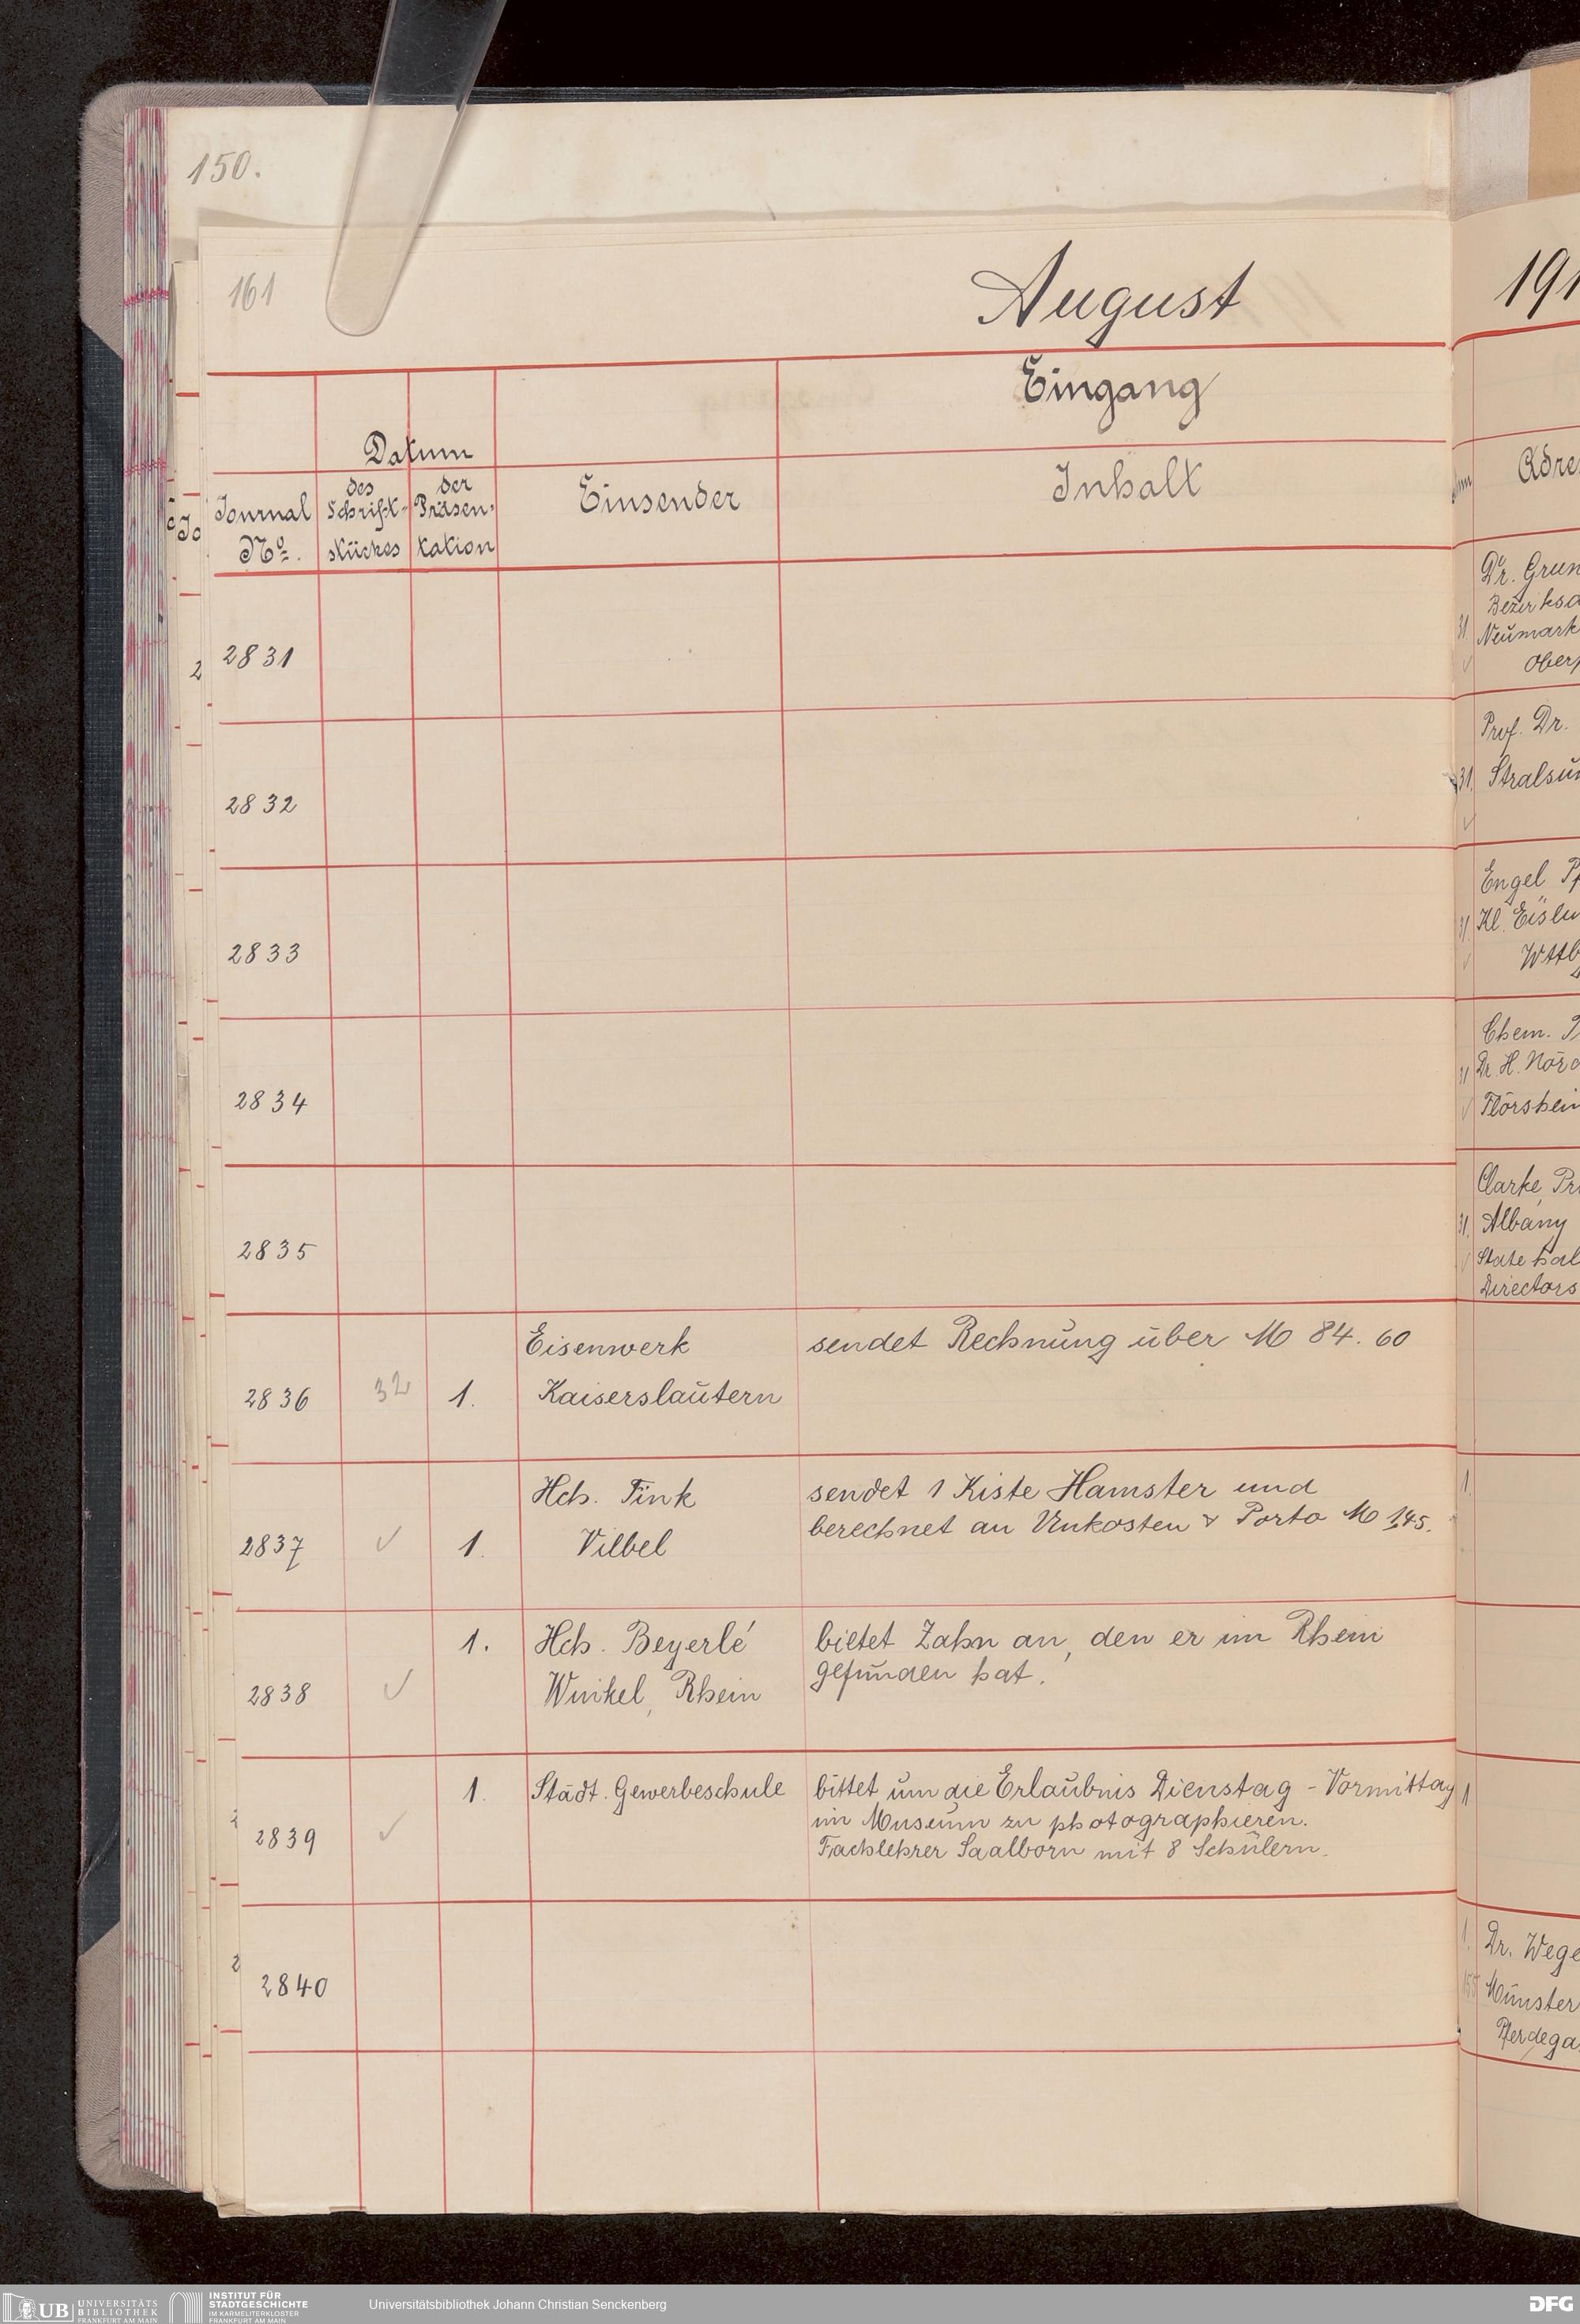 150.
161
August
191
Eingang
Datum
Journal
No.
des
Schrift-
stückes
der
Präsen-
tation
Einsender
Inhalt
Adre
2831
Dr. Grun
Bezirksa
31. Neumark
Oberp
2832
Prof. Dr.
31. Stralsun
2833
Engel Pf
31. Kl. Eislu
Wttb
2834
Chem.
31 Dr. H. Nörd
Flörsheim
2835
Clarke, Pr
31. Albany
State hal
Directors
2836 32 1. Eisenwerk
Kaiserslautern
sendet Rechnung über M 84.60
2837 ✓ 1. Hch. Fink
Vilbel
sendet 1 Kiste Hamster und
berechnet an Unkosten & Porto M 1.45.
1.
2838 ✓ 1. Hch. Beyerlé
Winkel, Rhein
bietet Zahn an, den er im Rhein
gefunden hat.
2839 ✓ 1. Städt. Gewerbeschule
bittet um die Erlaubnis Dienstag-Vormittag
im Museum zu photographieren.
Fachlehrer Saalborn mit 8 Schülern.
1
2840
1. Dr. Wege
Münster
Pferdega
UB UNIVERSITÄTS
BIBLIOTHEK
FRANKFURT AM MAIN
INSTITUT FÜR
STADTGESCHICHTE
IM KARMELITERKLOSTER
FRANKFURT AM MAIN
Universitätsbibliothek Johann Christian Senckenberg
DFG